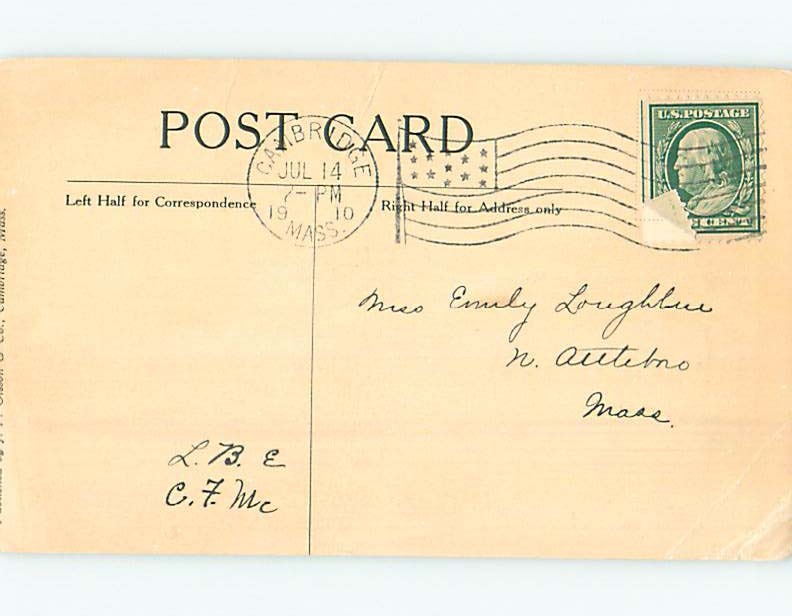 POST CARD
CAMBRIDGE
JUL 14
2- PM
19 10
MASS.
U.S. POSTAGE
CENT
Left Half for Correspondence
Right Half for Address only
Miss Emily Loughlin
N. Attleboro
Mass.
L. B. E
C. F. Mc
Co., Cambridge, Mass.